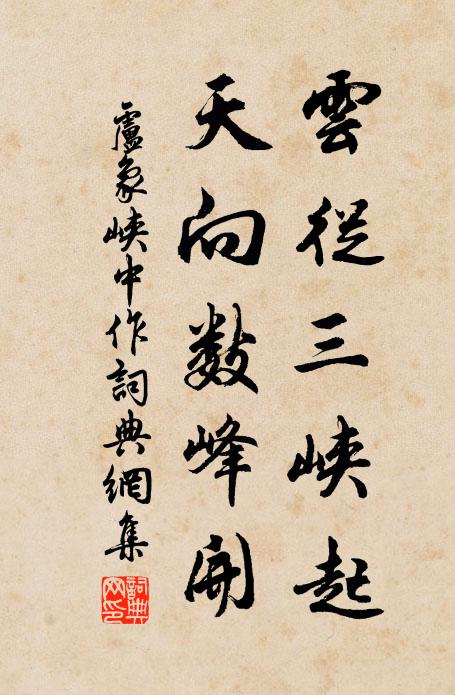 雲從三峽起
天向數峰開
盧象峽中作詞典網集
詞典
网印